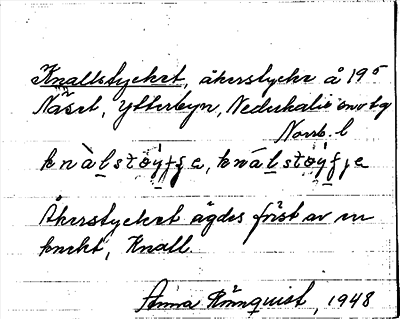 Knallstycket, åkerstycke å 19⁵
Näset, Ytterbyn, Nederkalix sn o tg
Norrb. l
Åkerstycket ägdes först av en
knekt, Knall.
Anna Rönnquist, 1948